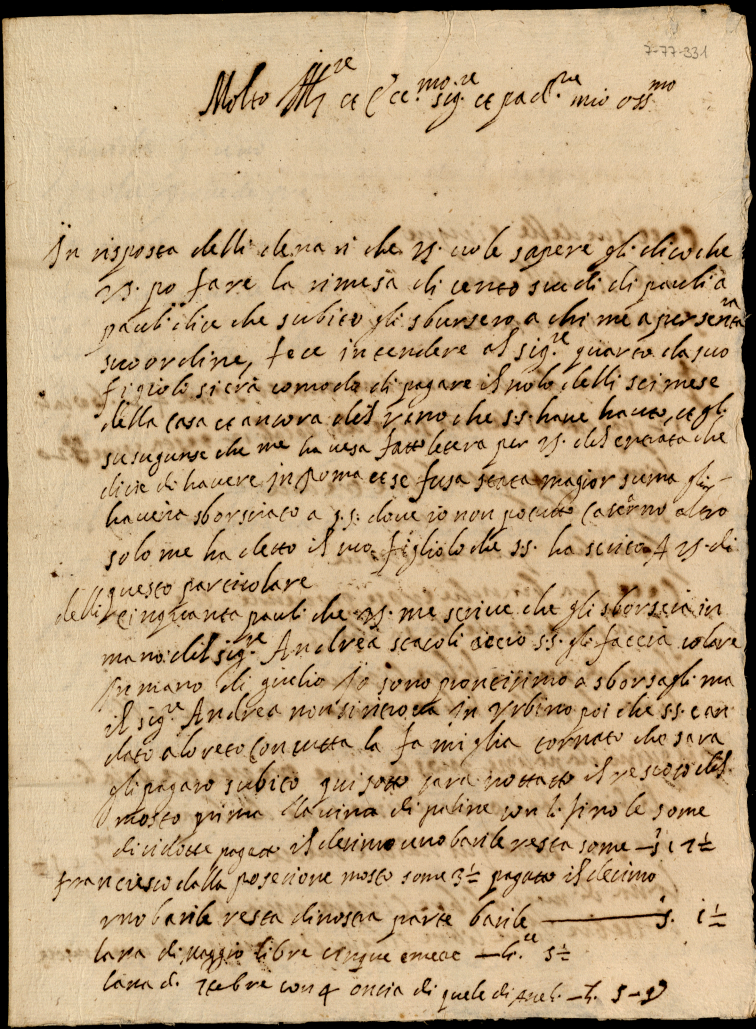 7-77-331
Molto Ill.re et Ecc.mo sig.re et pad.re mio oss.mo
In risposta delli denari che VS. vole sapere gli dico che
VS. po fare la rimesa di cento scudi di pauli a
pauli dice che subito gli sbursero a chi me apresenta
suo ordine, fece intendere al sig.re quarto da suo
figiolo si era comodo di pagare il nolo delli sei mese
della Casa et ancora del vino che s.s. have hauto, et gli
susugunse che me ha vesa fatto letera per VS. del entrata che
dicie di havere in Roma et se fusa stata magior suma gli
haveria sborsciato a s.s. dove io non potutto altro
solo me ha detto il suo figliolo che ss. ha scrito A VS. di
questo particulare
delli cinquanta pauli che VS. me scrive che gli sborscia in
mano del sig.re Andrea scacoli accio s.s. gli faccia volare
in mano di giulio Io sono prontisimo a sborsagli ma
il sig.re Andrea non si ritrova in Urbino poi che ss. e an
dato a loreto Con tutta la famiglia tornato che sara
gli pagaro subito qui sotto sara nottatto il rescoso del
mosto prima la vina di paline con li fino le some
dicidotte pagatto il decimo uno barile resta some — s. i7½
franciesco dalla posecione mosto some 3½ pagatto il decimo
uno barile resta di nostra parte barile — s. i½
lana di maggio libre cinque e meze — li.re 5½
lana di 7tebre con 4 oncia di quele di — li. 5-9